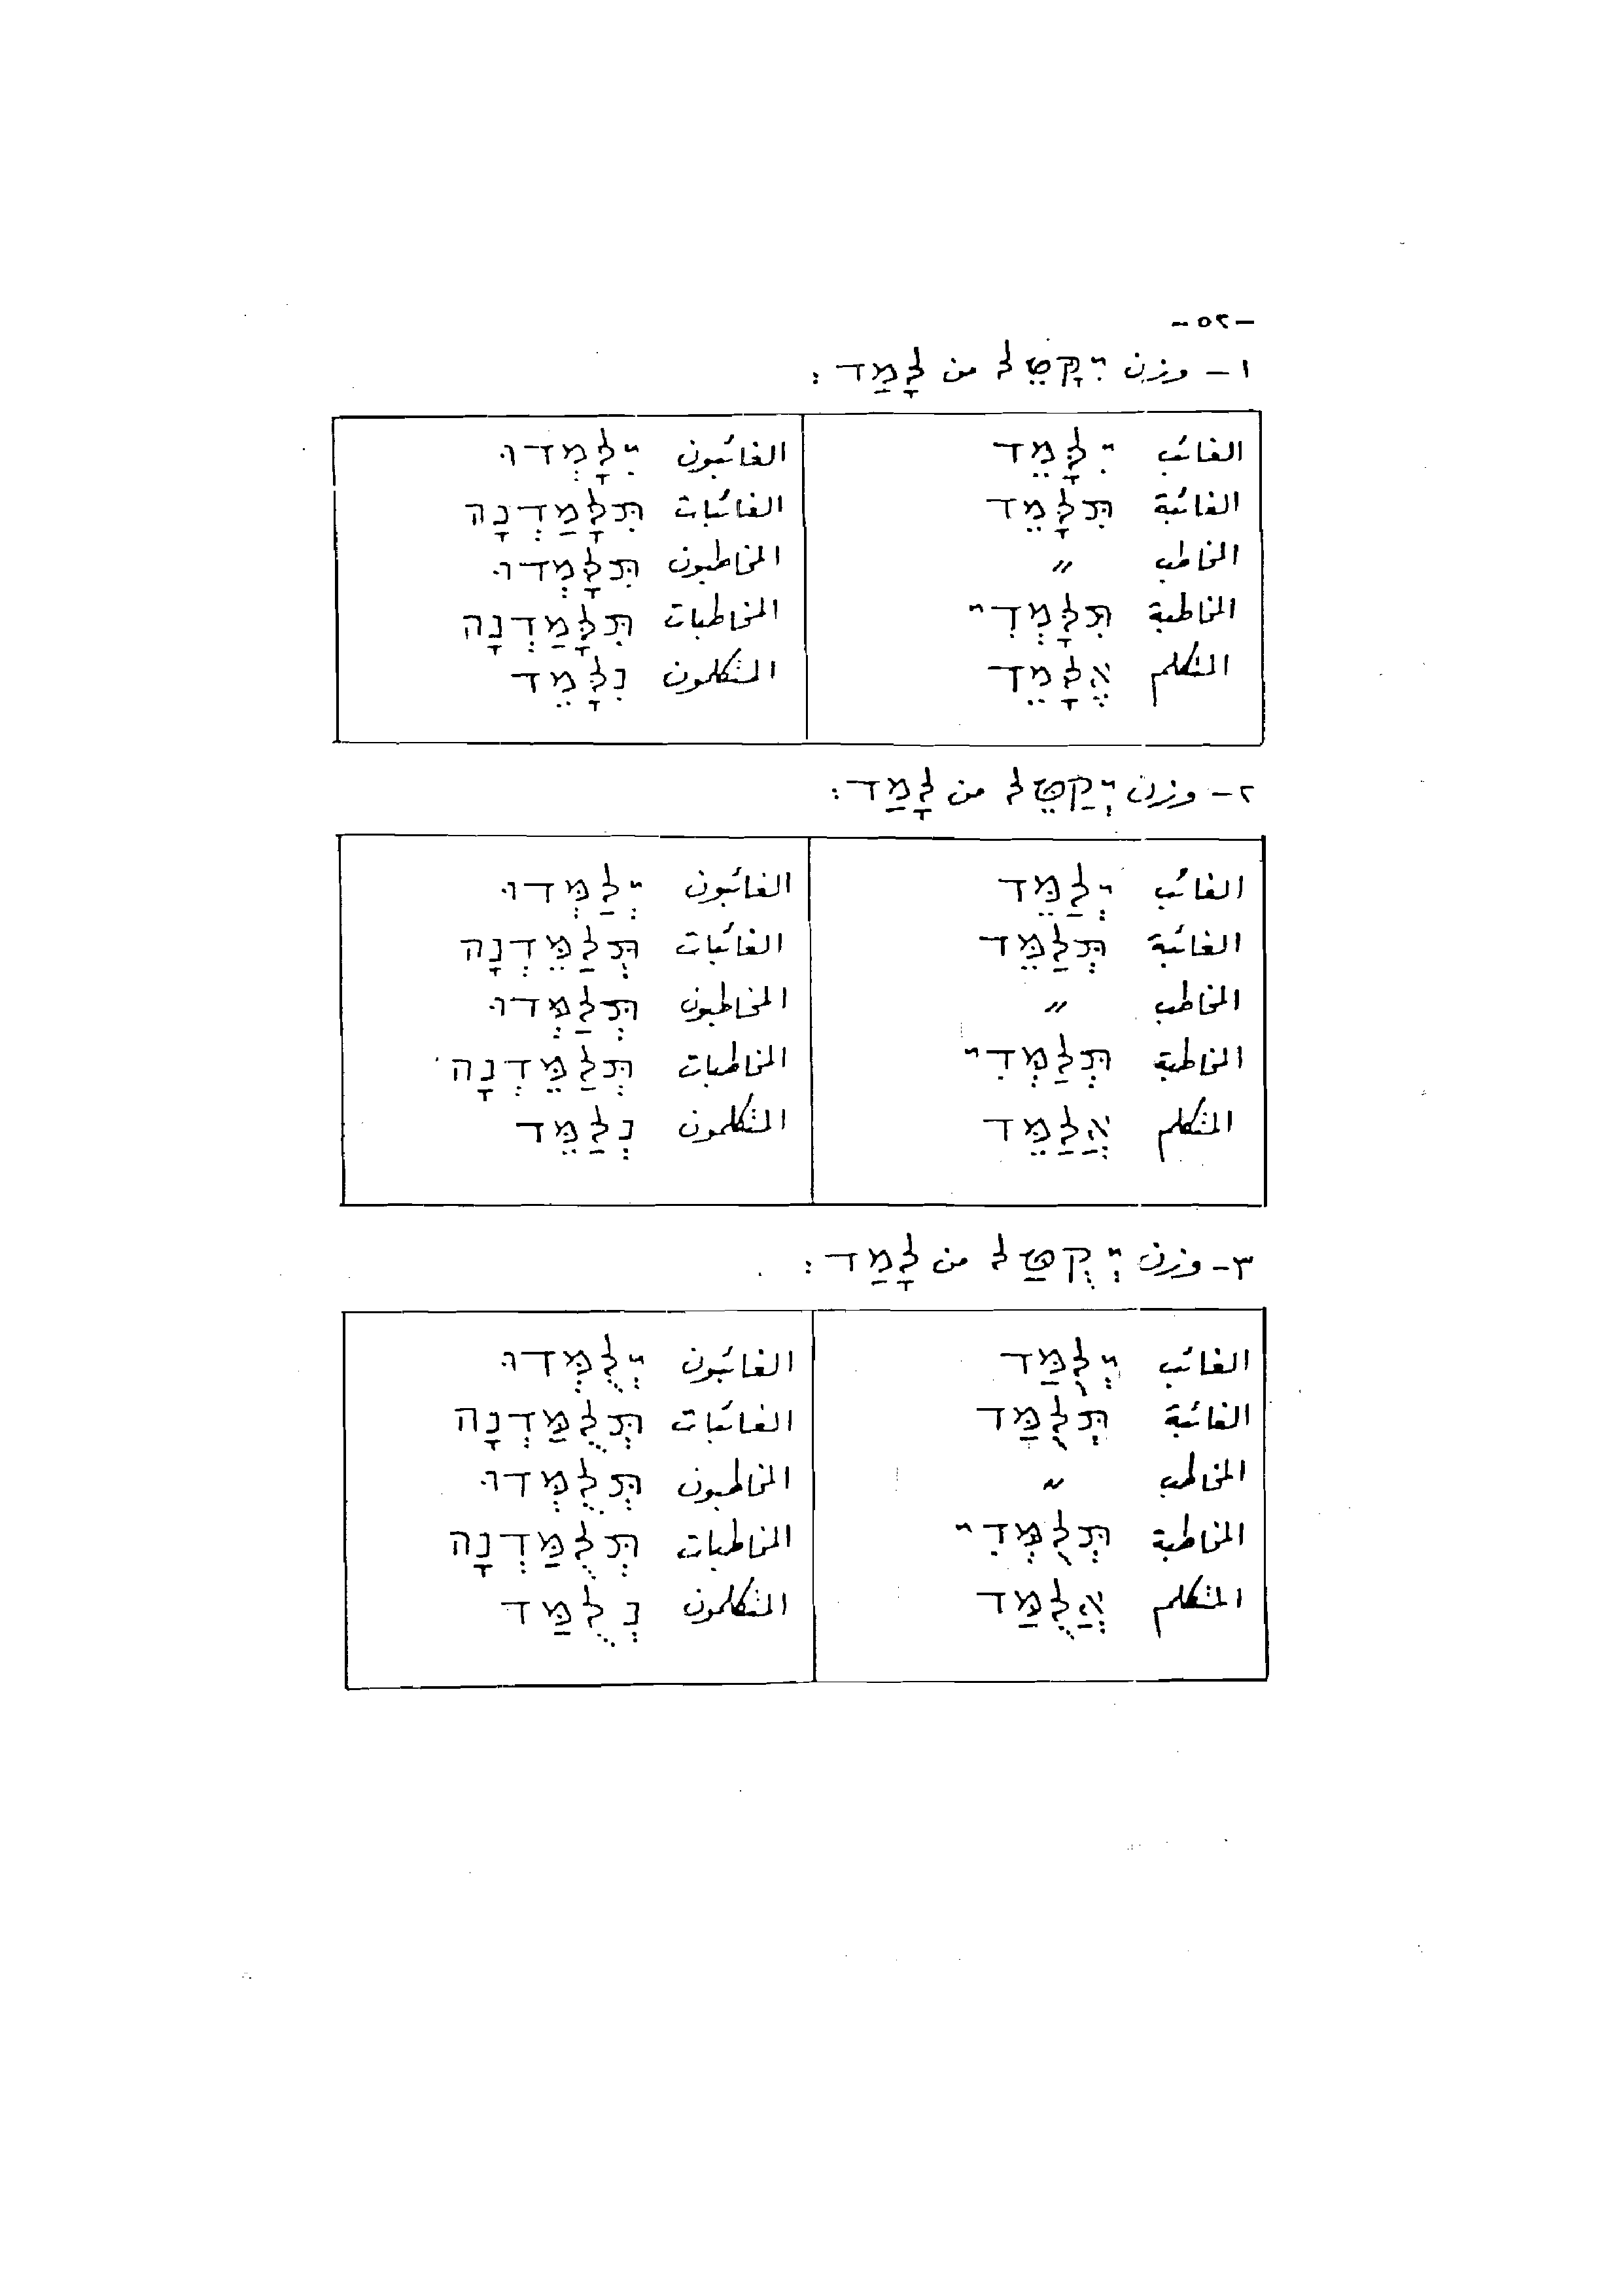 -٥٢-
١- وزن יִקָּטֵל من לָמַד :
الغائب יִלָּמֵד الغائبون יִלָּמְדוּ
الغائبة תִּלָּמֵד الغائبات תִּלָּמַדְנָה
المخاطب 〃 المخاطبون תִּלָּמְדוּ
المخاطبة תִּלָּמְדִי المخاطبات תִּלָּמַדְנָה
المتكلم אֶלָּמֵד المتكلمون נִלָּמֵד
٢- وزن יְקַטֵּל من לָמַד :
الغائب יְלַמֵּד الغائبون יְלַמְּדוּ
الغائبة תְּלַמֵּד الغائبات תְּלַמֵּדְנָה
المخاطب 〃 المخاطبون תְּלַמְּדוּ
المخاطبة תְּלַמְּדִי المخاطبات תְּלַמֵּדְנָה
المتكلم אֲלַמֵּד المتكلمون נְלַמֵּד
٣- وزن יְקֻטַּל من לָמַד :
الغائب יְלֻמַּד الغائبون יְלֻמְּדוּ
الغائبة תְּלֻמַּד الغائبات תְּלֻמַּדְנָה
المخاطب 〃 المخاطبون תְּלֻמְּדוּ
المخاطبة תְּלֻמְּדִי المخاطبات תְּלֻמַּדְנָה
المتكلم אֲלֻמַּד المتكلمون נְלֻמַּד